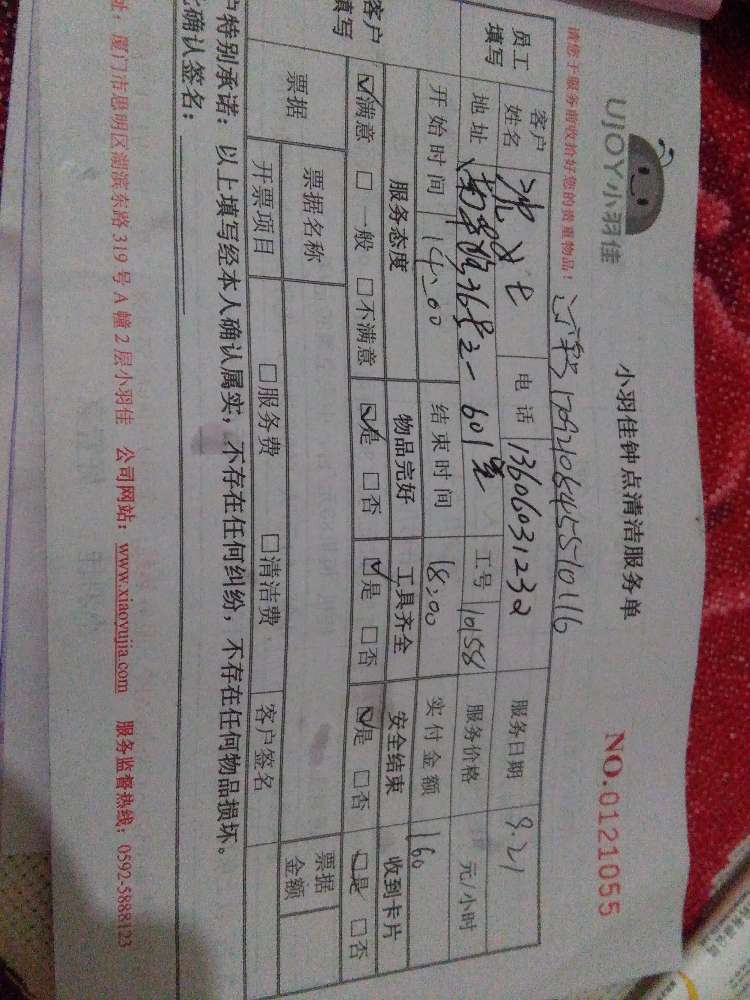 UJOY小羽佳
小羽佳钟点清洁服务单
NO.0121055
请您于服务前收拾好您的贵重物品！
17092108455710116
员工填写 客户姓名 女士 电话 13606031232 服务日期 9.21
地址 36号2-601室 工号 10158 服务价格 元/小时
开始时间 14:00 结束时间 18:00 实付金额 160
客户填写 服务态度 物品完好 工具齐全 安全结束 收到卡片
☑满意 □一般 □不满意 ☑是 □否 ☑是 □否 ☑是 □否 ☑是 □否
票据 票据名称 票据金额
开票项目 □服务费 □清洁费 客户签名
户特别承诺：以上填写经本人确认属实，不存在任何纠纷，不存在任何物品损坏。
确认签名：
址：厦门市思明区湖滨东路319号A幢2层小羽佳 公司网站：www.xiaoyujia.com 服务监督热线：0592-5888123